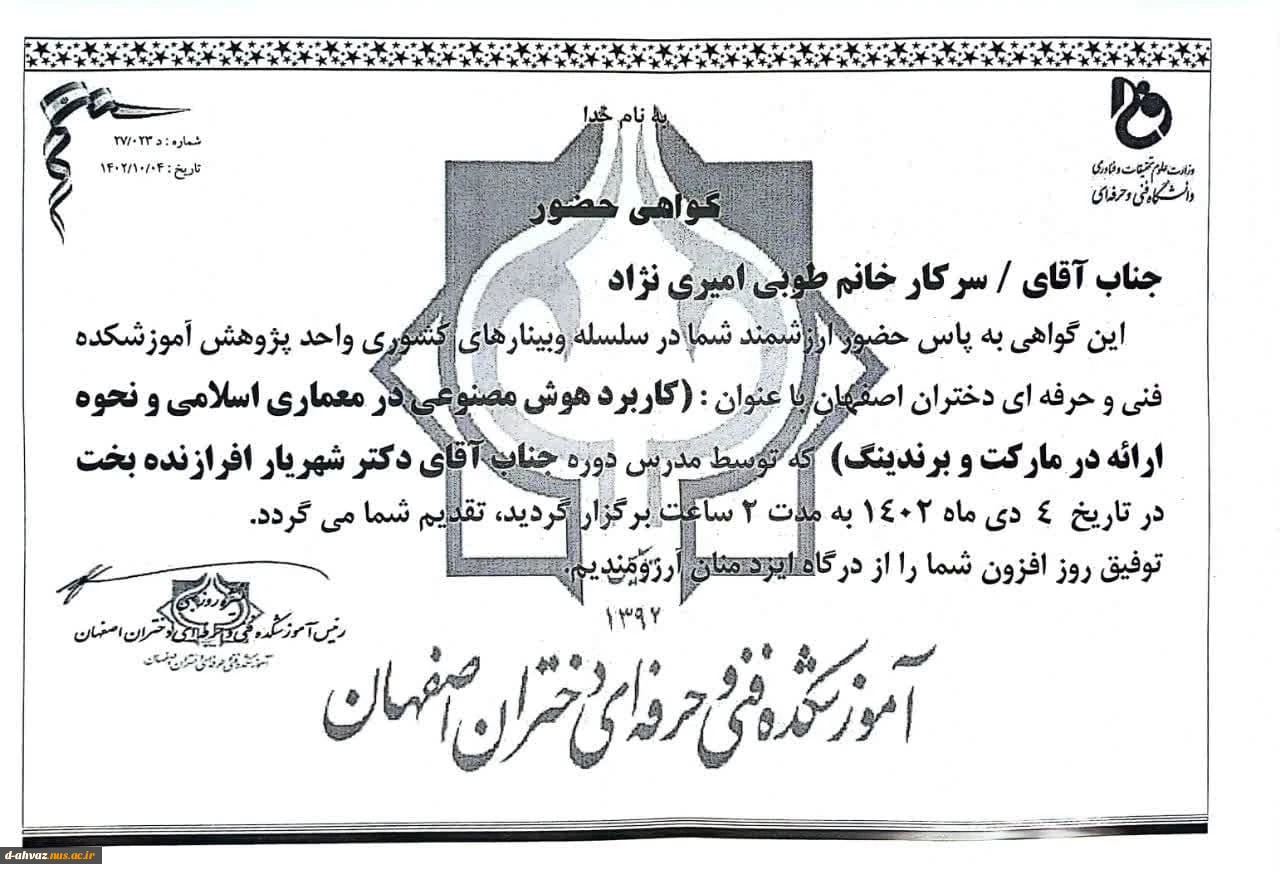 به نام خدا
شماره : د ۲۷/۰۲۳
تاریخ : ۱۴۰۲/۱۰/۰۴
وزارت علوم تحقیقات و فناوری
دانشگاه فنی و حرفه‌ای
گواهی حضور
جناب آقای / سرکار خانم طوبی امیری نژاد
این گواهی به پاس حضور ارزشمند شما در سلسله وبینارهای کشوری واحد پژوهش آموزشکده
فنی و حرفه ای دختران اصفهان با عنوان : (کاربرد هوش مصنوعی در معماری اسلامی و نحوه
ارائه در مارکت و برندینگ) که توسط مدرس دوره جناب آقای دکتر شهریار افرازنده بخت
در تاریخ ۴ دی ماه ۱۴۰۲ به مدت ۲ ساعت برگزار گردید، تقدیم شما می گردد.
توفیق روز افزون شما را از درگاه ایزد منان آرزومندیم.
۱۳۹۲
رئیس آموزشکده فنی و حرفه‌ای دختران اصفهان
آموزشکده فنی و حرفه‌ای دختران اصفهان
آموزشکده فنی و حرفه‌ای دختران اصفهان
d-ahvaz.nus.ac.ir